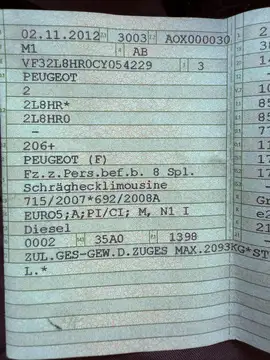 02.11.2012 3003 AOX000030
M1 AB
VF32L8HR0CY054229 3
PEUGEOT
2
2L8HR*
2L8HR0
-
206+
PEUGEOT (F)
Fz.z.Pers.bef.b. 8 Spl.
Schräghecklimousine
715/2007*692/2008A
EURO5;A;PI/CI; M, N1 I
Diesel
0002 35A0 1398
ZUL.GES-GEW.D.ZUGES MAX.2093KG*ST
L.*